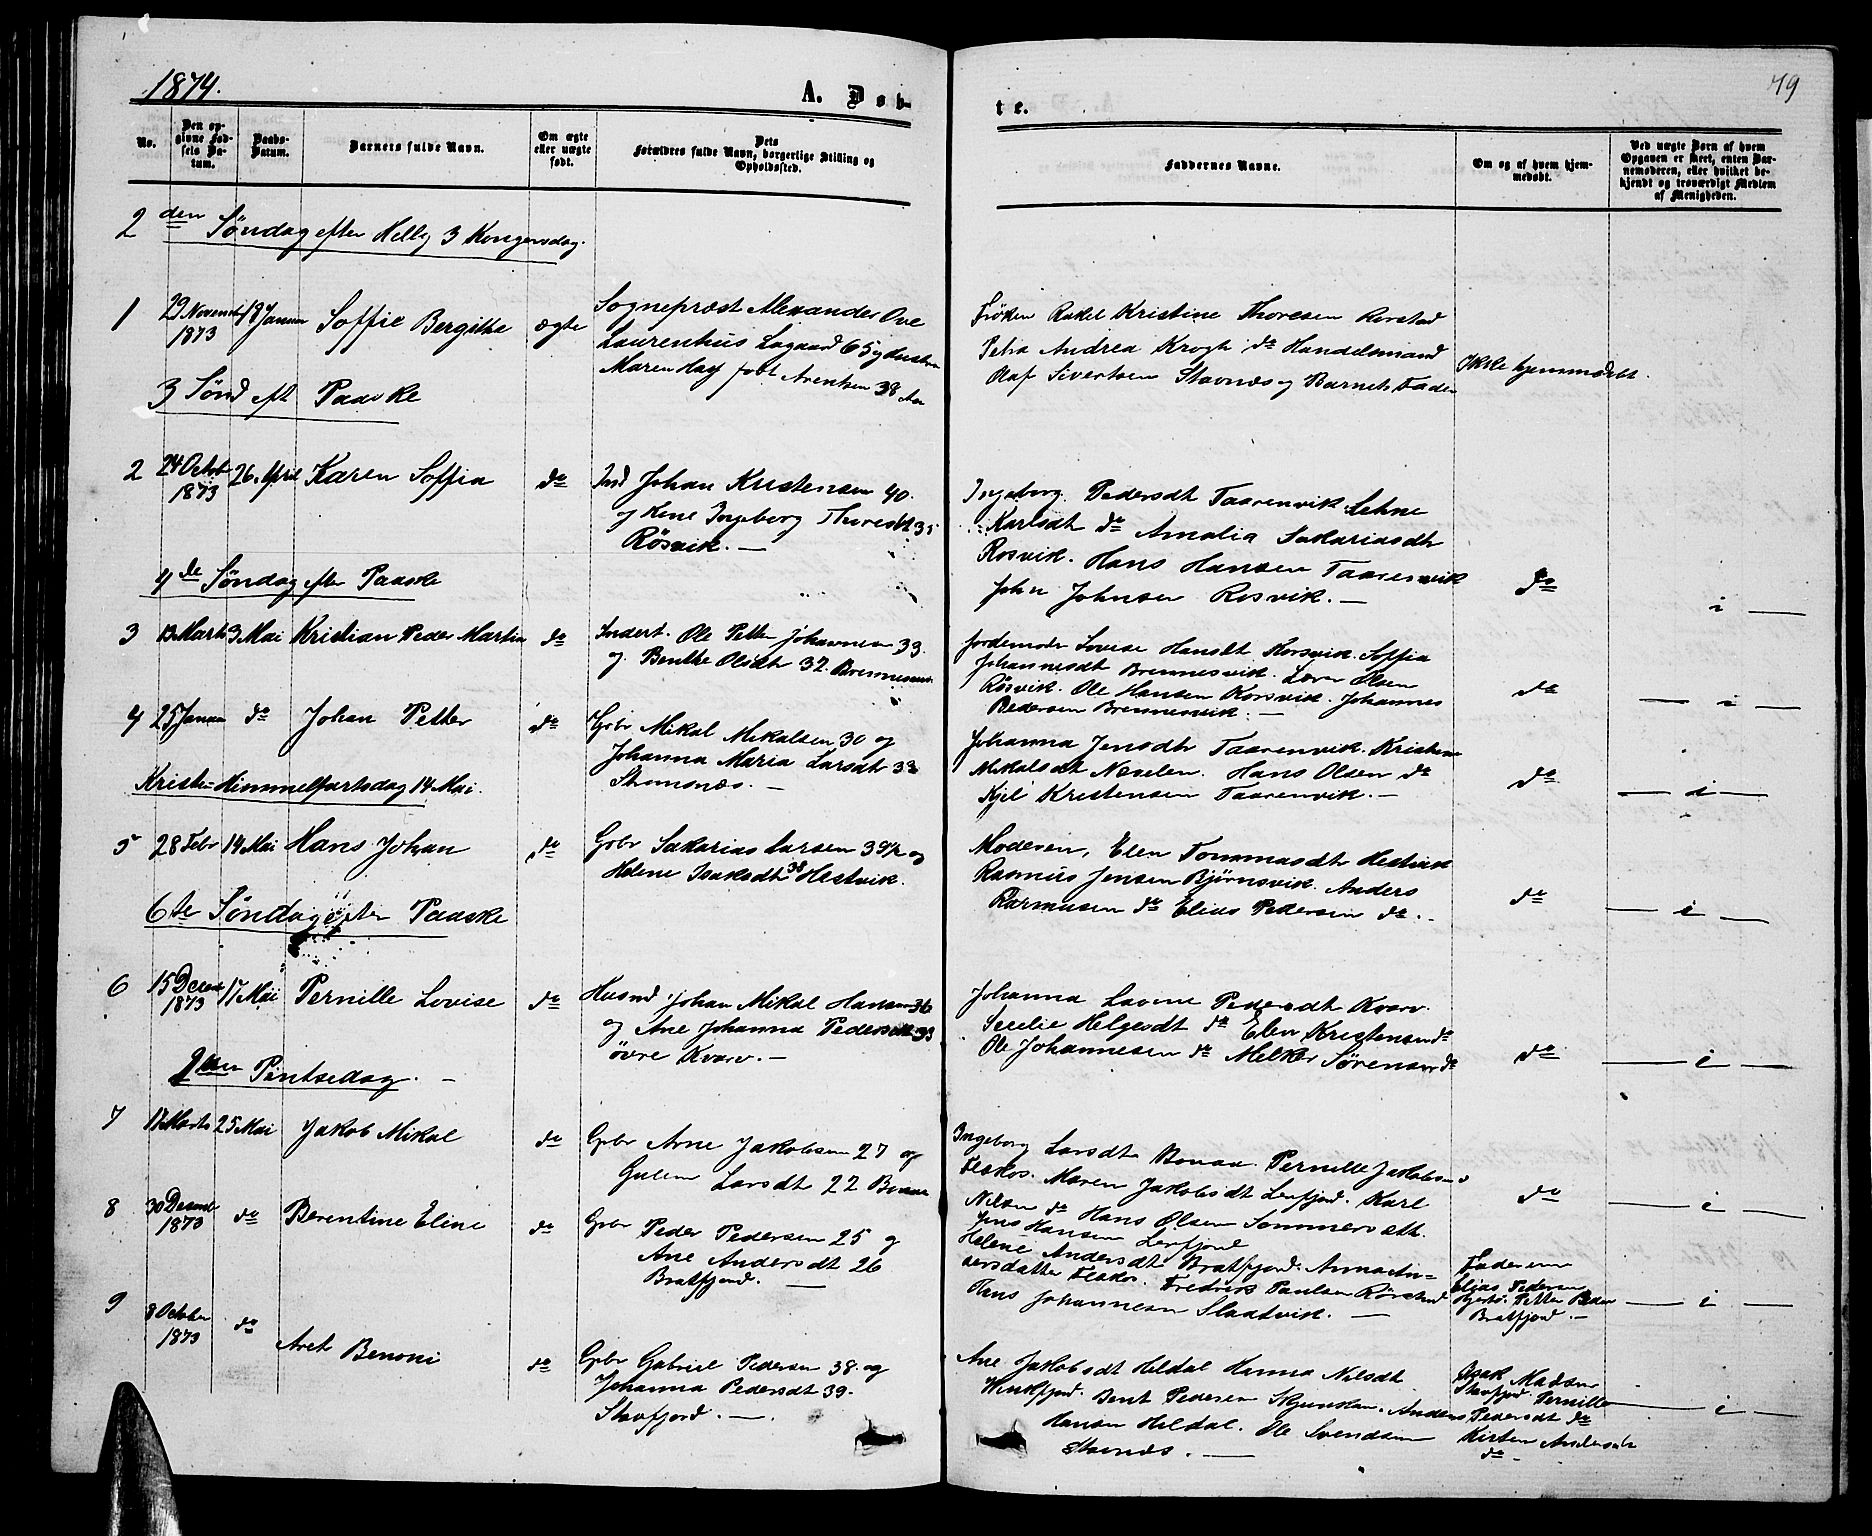 1874.
A. Døb-
te.
79
No.
Den op-
givne Fød-
sels Da-
tum.
Daabs-
Datum.
Barnets fulde Navn.
Om ægte
eller uægte
født.
Dets
Forældres fulde Navn, borgerlige Stilling og
Opholdssted.
Faddernes Navne.
Om og af hvem hjem-
medøbt.
Ved uægte Børn af hvem
Opgaven er skeet, enten Bar-
nemoderen, eller hvilket be-
kjendt og troværdigt Medlem
af Menigheden.
2 den Søndag efter Hellig 3 Kongersdag.
1
29 Novemb
1873
18 Januar
Soffie Bergitte
ægte
Sognepræst Alexander Ove
Laurentius 65
Maren født Arentsen 38 Aar
Frøken Rakel Kristine Thoresen Rørstad
Petra Andrea Krogh do Handelsmand
Olaf Sivertsen Stavnæs og Barnets Fader
Ikke hjemmedøbt.
3 Sønd eft Paaske
2
24 Octob
1873
26 April
Karen Soffia
do
Ind Johan Kristensen 40.
og Ingeborg 35
Røsvik. —
Ingeborg Pedersdt Taarenvik
Karlsdt do Amalia Sakariasdtr
Rosvik. Hans Hansen Taarenvik
John Johnsen Rosvik. —
do
— i —
4de Søndag efter Paaske
3
13 Marts
3 Mai
Kristian Peder Martin
do
Inderst. Ole Petter Johannesen 33.
og Benthe Olsdt 32
Jordemoder Lovise Hansdt Korsvik. Soffia
Johannesdt Brennesvik. Olsen
Røsvik. Ole Hansen Korsvik. Johannes
Pedersen Brennesvik. —
do
— i —
4
25 Januar
do
Johan Petter
do
Gbr Mikal Mikalsen 30 og
Johanna Maria Larsdt 33
Strømsnæs. —
Johanna Jensdtr Taarenvik. Kristine
Mikalsdt Nævelen. Hans Olsen do
Kjel Kristensen Taarenvik. —
do
— i —
Kristi-Himmelfartsdag 14 Mai.
5
28 Febr
14 Mai
Hans Johan
do
Gbr Sakarias Larsen 39½ og
Helene Isaksdtr 38 Hestvik.
Moderen, Elen Tommasdtr Hestvik
Rasmus Jensen Bjørnsvik. Anders
Rasmusen do Elias Pedersen do. —
do
— i —
6te Søndag efter Paaske
6
15 Decem
1873
17 Mai
Pernille Lovise
do
Husmd Johan Mikal Hansen 36
og Ane Johanna Pedersdt 33
øvre Kvarv. —
Johanna Lovine Pedersdt Kvarv.
Secelie Helgesdt do Elen Kristensen do
Ole Johannesen do Melker Sørensen do
do
— i —
2den Pintsedag. —
7
17 Marts
25 Mai
Jakob Mikal
do
Gbr Arne Jakobsen 27 og
Larsdt 22
Ingeborg Larsdt Pernille Jakobsen
Maren Jakobsdt Leifjord. Karl
Nilsen do Hans Olsen Sommersæth.
Jens Hansen Leifjord
do
— i —
8
30 Decemb
1873
do
Berentine Eline
do
Gbr Peder Pedersen 25 og
Ane Andersdt 26
Bratfjord. —
Helene Andersdtr Bratfjord. Anna An-
dersdatter Fredrik Paulsen Rørstad
Hans Johannesen Slaatvik. —
Faderen
Elias Pedersen
Petter Peder
Bratfjord. —
— i —
9
8 October
1873
do
Aret Benoni
do
Gbr Gabriel Pedersen 38. og
Johanna Pedersdt 39.
Stavfjord. —
Ane Jakobsdt Heldal Hanna Nilsdt
Bent Pedersen Anders
Hansen Heldal. Ole Svendsen
Stavnæs. —
Isak Madsen
Stavfjord Pernille
Pedersdt do
Kirsten Andersdt
do
— i —